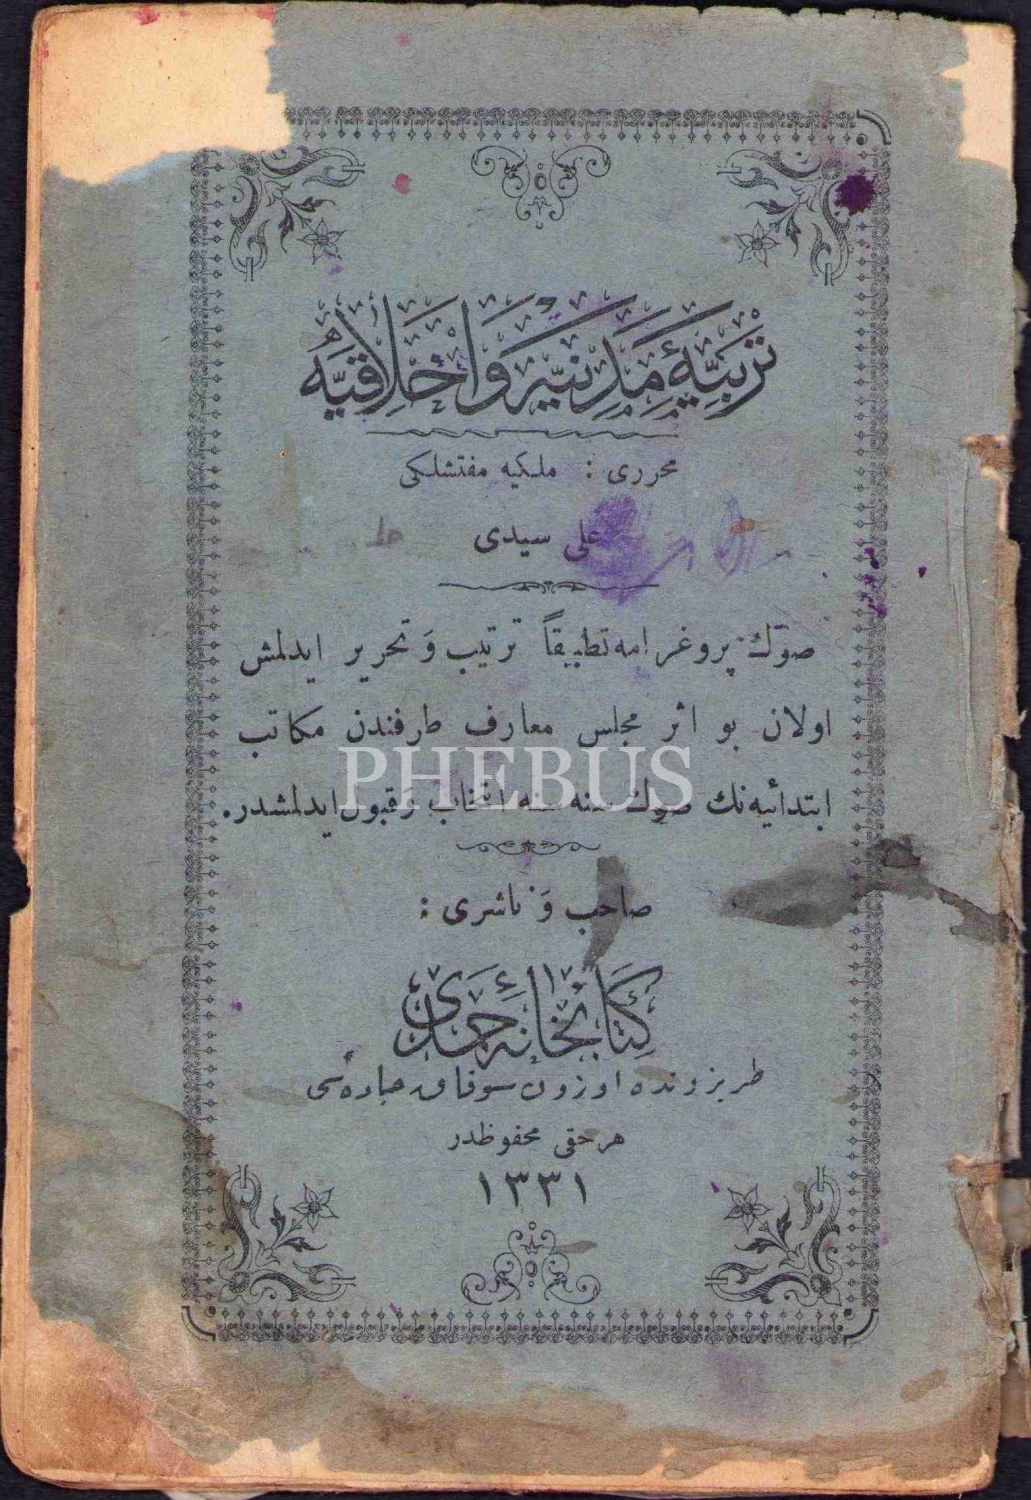 تربيۀ مدنيه و اخلاقيه
محررى : ملكيه مفتشلكى
على سيدى
صوك پروغرامه تطبيقاً ترتيب و تحرير ايدلمش
اولان بو اثر مجلس معارف طرفندن مكاتب
PHEBUS
ابتدائيه‌نك صوك سنه‌سنه انتخاب و قبول ايدلمشدر.
صاحب و ناشرى :
كتابخانۀ حمدى
طربزونده اوزون سوقاق جاده‌سى
هر حقى محفوظدر
١٣٣١